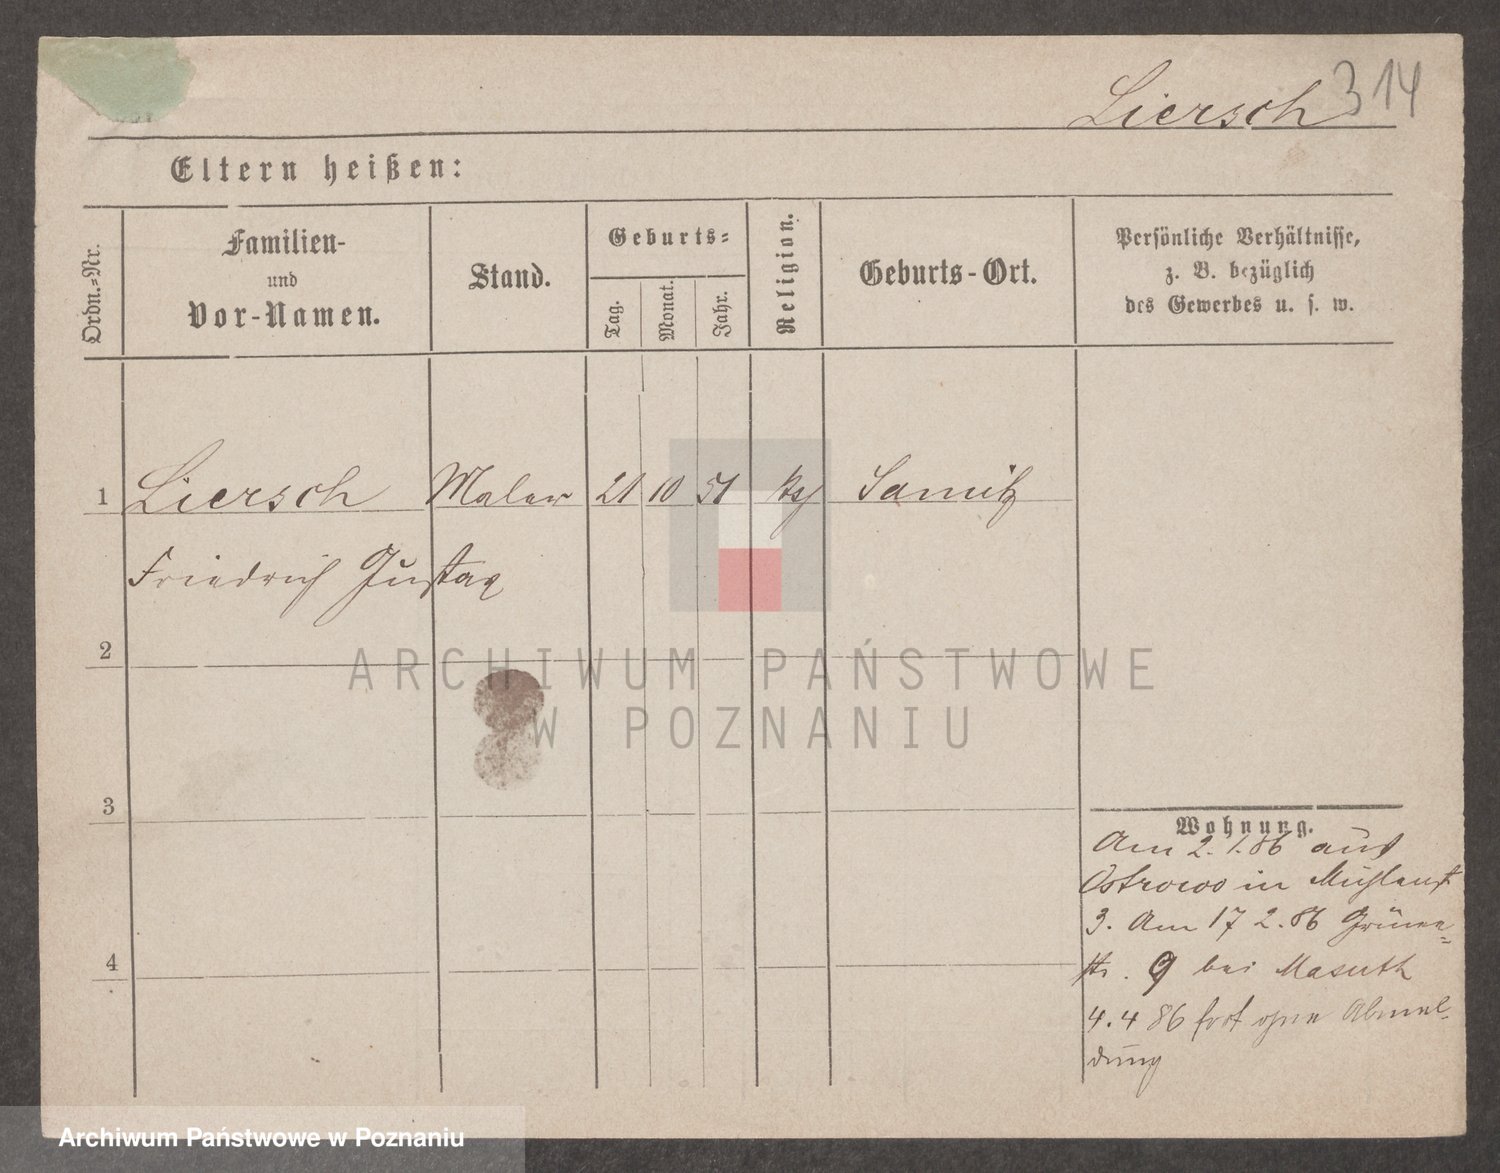 Liersch 314
Eltern heißen:
Ordn.-Nr.
Familien-
und
Vor-Namen.
Stand.
Geburts-
Tag.
Monat.
Jahr.
Religion.
Geburts-Ort.
Persönliche Verhältnisse,
z. B. bezüglich
des Gewerbes u. s. w.
1 Liersch Maler 21 10 51
Friedrich Gustav
2
ARCHIWUM PAŃSTWOWE
W POZNANIU
3
4
Wohnung.
Am 2. 1. 86 aus
Ostrowo in Mühlenst
3. Am 17 2. 86 Grüne-
str. 9 bei Masuth
4. 4 86 fort ohne Abmel-
dung
Archiwum Państwowe w Poznaniu